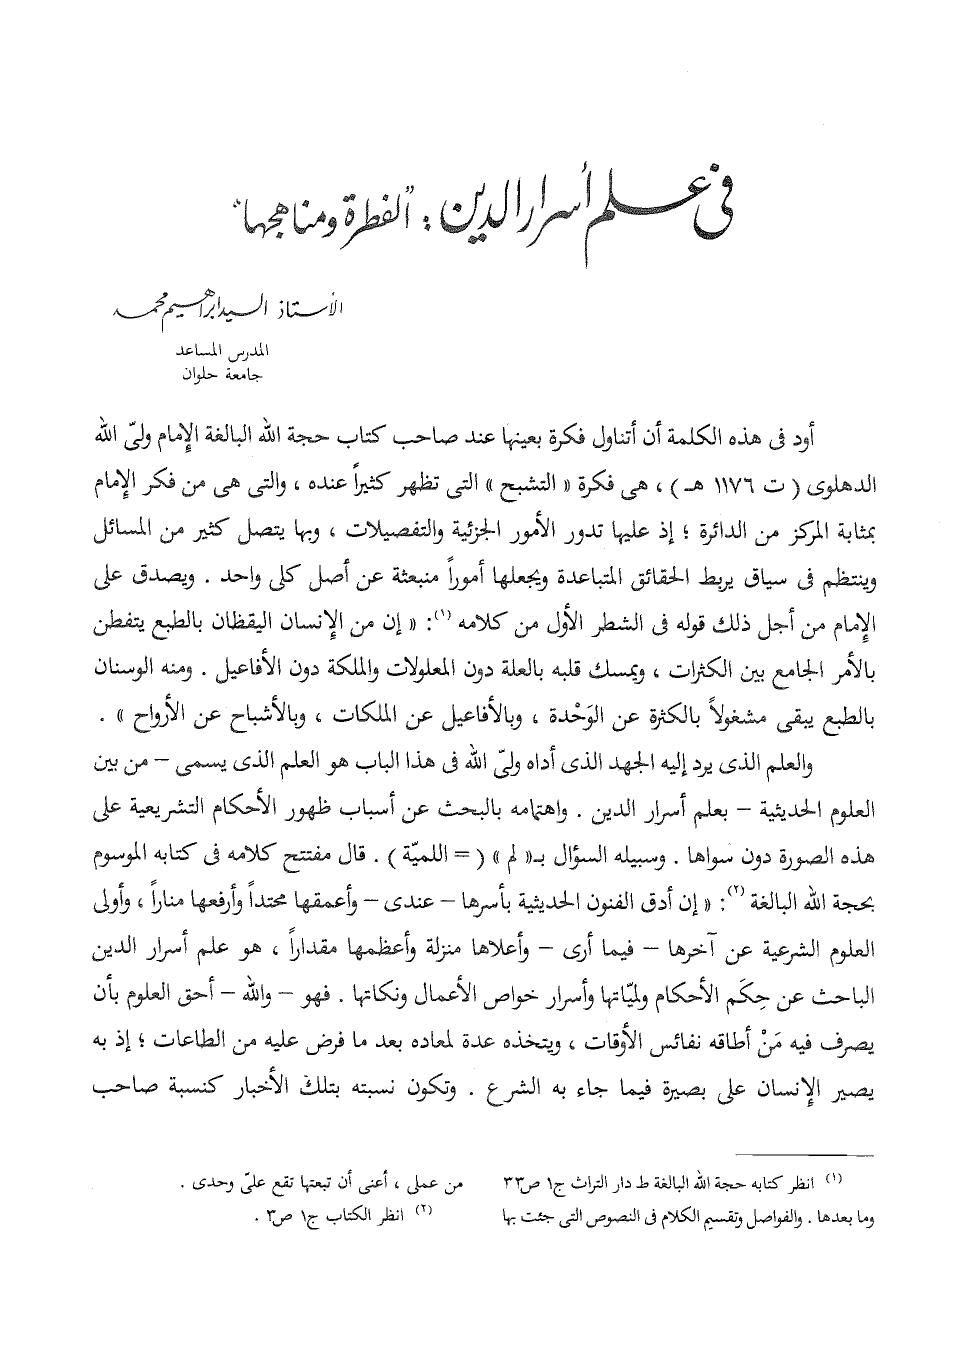 فى علم أسرار الدين : "الفطرة ومناهجها"
الأستاذ السيد إبراهيم محمد
المدرس المساعد
جامعة حلوان
أود فى هذه الكلمة أن أتناول فكرة بعينها عند صاحب كتاب حجة الله البالغة الإمام ولىّ الله
الدهلوى ( ت ١١٧٦ هـ ) ، هى فكرة « التشبح » التى تظهر كثيراً عنده ، والتى هى من فكر الإمام
بمثابة المركز من الدائرة ؛ إذ عليها تدور الأمور الجزئية والتفصيلات ، وبها يتصل كثير من المسائل
وينتظم فى سياق يربط الحقائق المتباعدة ويجعلها أموراً منبعثة عن أصل كلى واحد . ويصدق على
الإمام من أجل ذلك قوله فى الشطر الأول من كلامه (١): « إن من الإنسان اليقظان بالطبع يتفطن
بالأمر الجامع بين الكثرات ، ويمسك قلبه بالعلة دون المعلولات والملكة دون الأفاعيل . ومنه الوسنان
بالطبع يبقى مشغولاً بالكثرة عن الوَحْدة ، وبالأفاعيل عن الملكات ، وبالأشباح عن الأرواح » .
والعلم الذى يرد إليه الجهد الذى أداه ولىّ الله فى هذا الباب هو العلم الذى يسمى – من بين
العلوم الحديثية – بعلم أسرار الدين . واهتمامه بالبحث عن أسباب ظهور الأحكام التشريعية على
هذه الصورة دون سواها . وسبيله السؤال بـ« لم » ( = اللميّة ) . قال مفتتح كلامه فى كتابه الموسوم
بحجة الله البالغة (٢): « إن أدق الفنون الحديثية بأسرها – عندى – وأعمقها محتداً وأرفعها مناراً ، وأولى
العلوم الشرعية عن آخرها – فيما أرى – وأعلاها منزلة وأعظمها مقداراً ، هو علم أسرار الدين
الباحث عن حِكَم الأحكام ولميّاتها وأسرار خواص الأعمال ونكاتها . فهو – والله – أحق العلوم بأن
يصرف فيه مَنْ أطاقه نفائس الأوقات ، ويتخذه عدة لمعاده بعد ما فرض عليه من الطاعات ؛ إذ به
يصير الإنسان على بصيرة فيما جاء به الشرع . وتكون نسبته بتلك الأخبار كنسبة صاحب
(١) انظر كتابه حجة الله البالغة ط دار التراث ج١ ص٣٣
وما بعدها . والفواصل وتقسيم الكلام فى النصوص التى جئت بها
من عملى ، أعنى أن تبعتها تقع علىّ وحدى .
(٢) انظر الكتاب ج١ ص٣ .